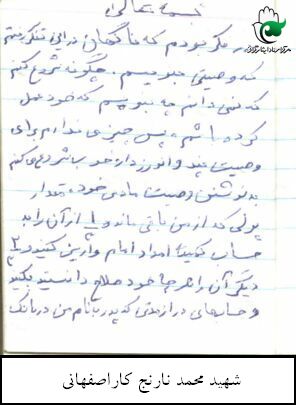 بسمه تعالی
فکر بودم که ناگهان در این تفکر رفتم
که وصیتی بنویسم. چگونه شروع کنم
که نمی دانم چه بنویسم که خود عمل
کرده باشم. پس چیزی ندارم برای
وصیت پند و اندرز دار خو باشد شروع می کنم
به نوشتن وصیت مادی خود. مقدار
پولی که از من باقی مانده از آن را به
حساب کمیته امداد امام واریز کنید و
دیگر آن را هر چه خود صلاح دانستید بکنید
و حسابهای دراز مدتی که پدر بنام من در بانک
شهید محمد نارنج کاراصفهانی